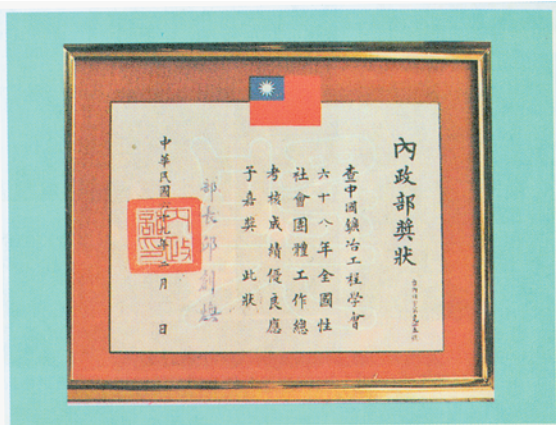 內政部獎狀
查中國鑛冶工程學會
六十八年全國性
社會團體工作總
考核成績優良應
予嘉獎 此狀
部長邱創煥
中華民國 年 月 日
內政部印